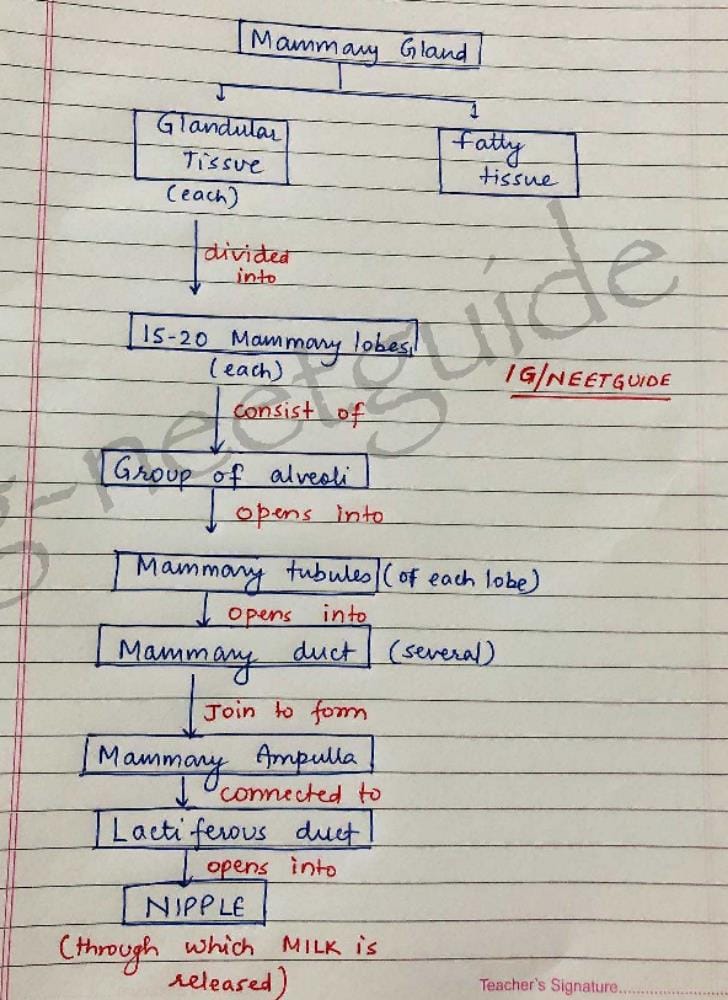 Mammary Gland
Glandular
Tissue
(each)
Fatty
tissue
divided
into
15-20 Mammary lobes
(each)
IG/NEETGUIDE
consist of
Group of alveoli
opens into
Mammary tubules (of each lobe)
opens into
Mammary duct (several)
Join to form
Mammary Ampulla
connected to
Lactiferous duct
opens into
NIPPLE
(through which MILK is
released)
Teacher's Signature
g-neetguide